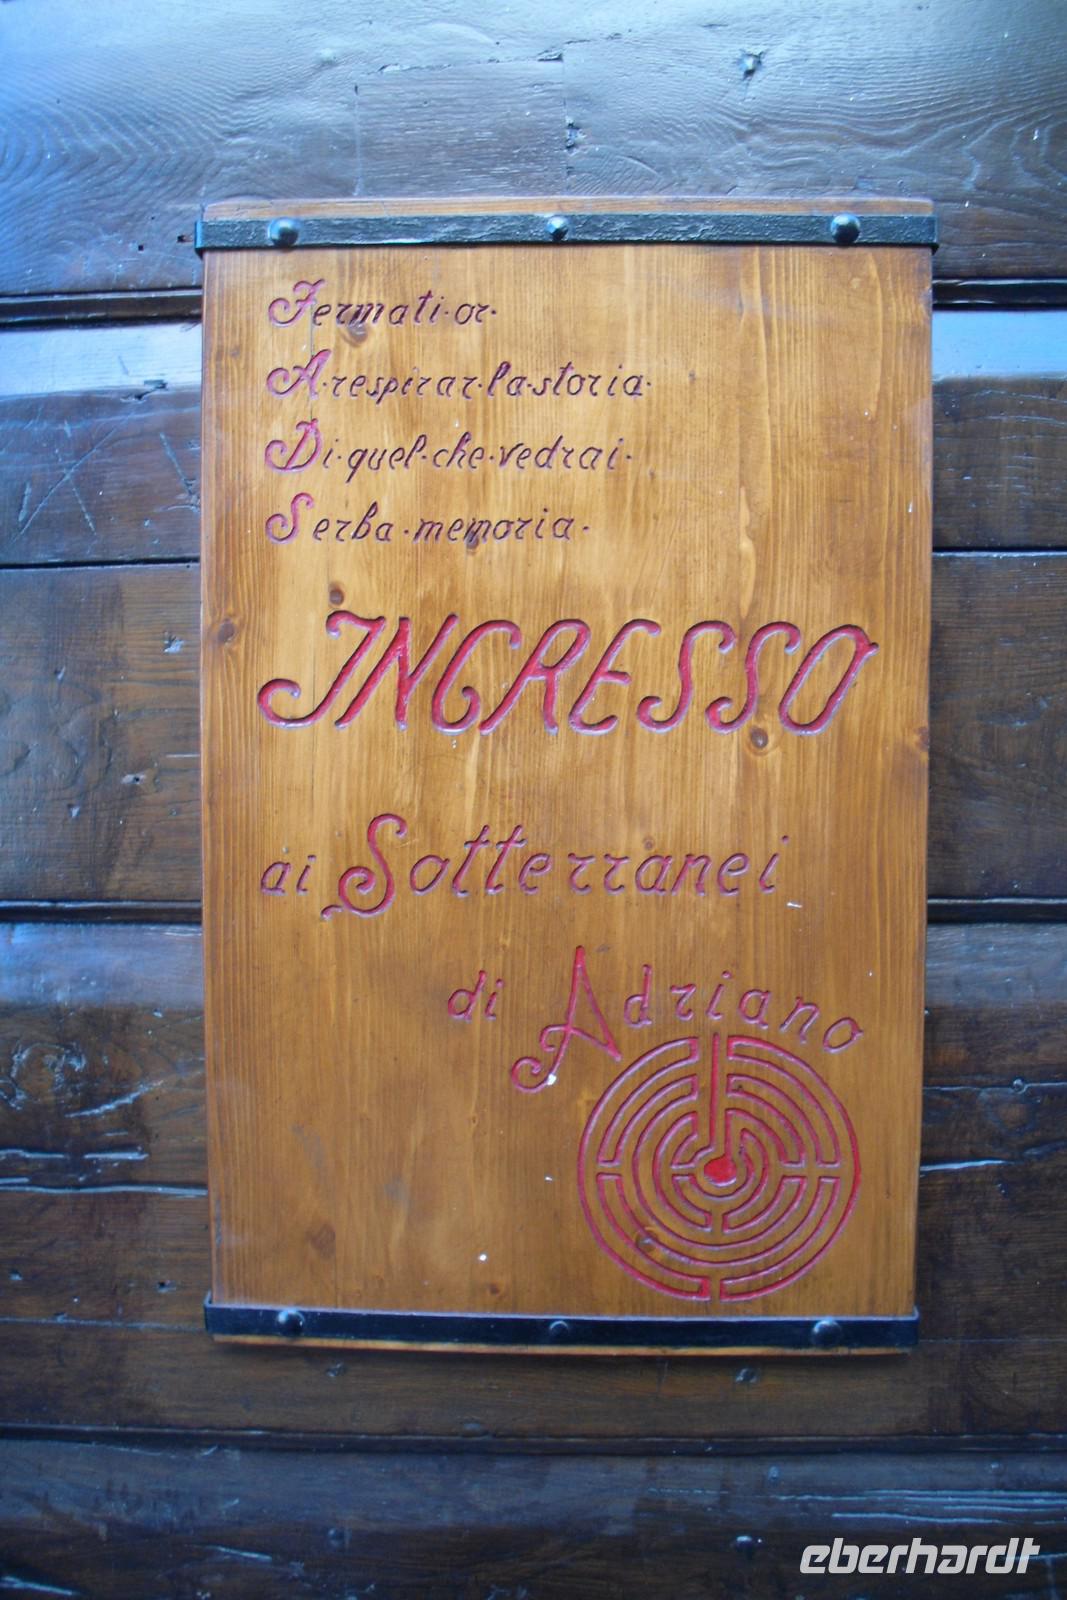 Fermati·or·
A·respirar·la·storia·
Di·quel·che·vedrai·
Serba·memoria·
INGRESSO
ai Sotterranei
di Adriano
eberhardt